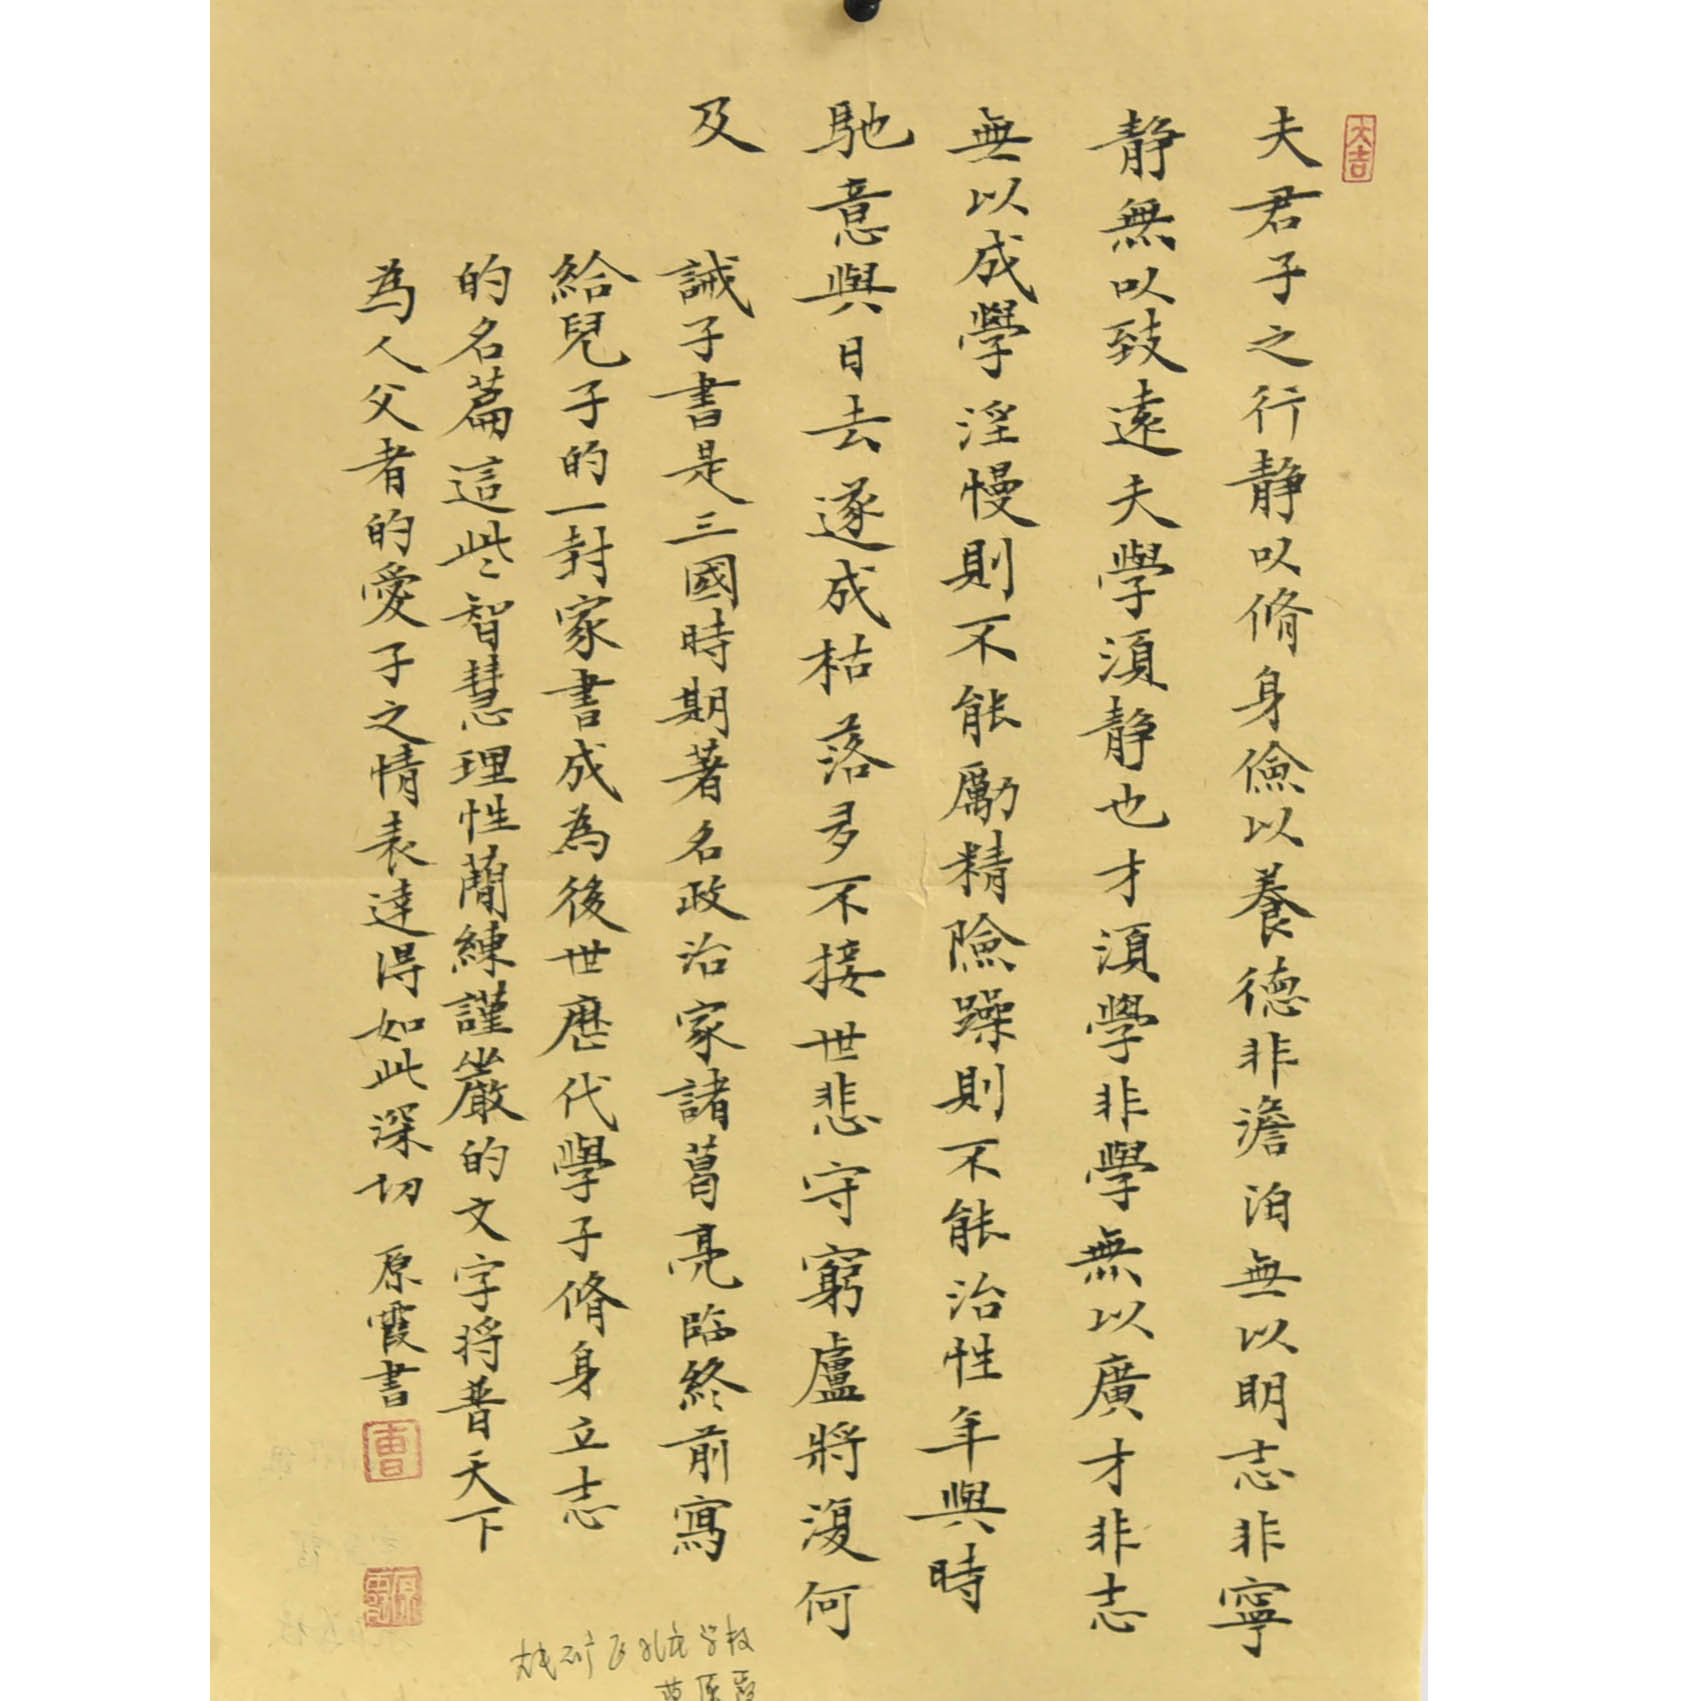 大吉
夫君子之行静以脩身儉以養德非澹泊無以明志非寧
静無以致遠夫學須静也才須學非學無以廣才非志
無以成學淫慢則不能勵精險躁則不能治性年與時
馳意與日去遂成枯落多不接世悲守窮廬將復何
及
誡子書是三國時期著名政治家諸葛亮臨終前寫
給兒子的一封家書成為後世歷代學子脩身立志
的名篇這些智慧理性簡練謹嚴的文字将普天下
為人父者的愛子之情表達得如此深切 原霞書
曹
原霞